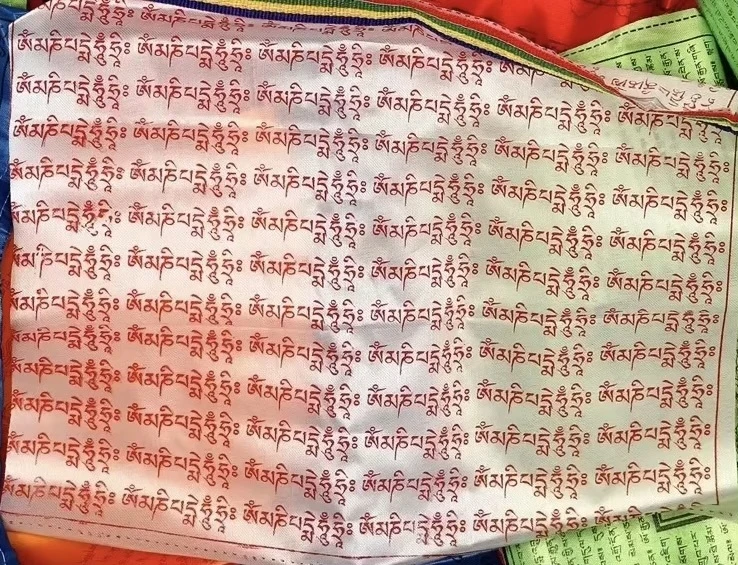 ཨོཾམཎིཔདྨེཧཱུྃཧྲཱིཿ ཨོཾམཎིཔདྨེཧཱུྃཧྲཱིཿ ཨོཾམཎིཔདྨེཧཱུྃཧྲཱིཿ ཨོཾམཎིཔདྨེཧཱུྃཧྲཱིཿ
ཨོཾམཎིཔདྨེཧཱུྃཧྲཱིཿ ཨོཾམཎིཔདྨེཧཱུྃཧྲཱིཿ ཨོཾམཎིཔདྨེཧཱུྃཧྲཱིཿ ཨོཾམཎིཔདྨེཧཱུྃཧྲཱིཿ ཨོཾམཎིཔདྨེཧཱུྃཧྲཱིཿ ཨོཾམཎིཔདྨེཧཱུྃཧྲཱིཿ
ཨོཾམཎིཔདྨེཧཱུྃཧྲཱིཿ ཨོཾམཎིཔདྨེཧཱུྃཧྲཱིཿ ཨོཾམཎིཔདྨེཧཱུྃཧྲཱིཿ ཨོཾམཎིཔདྨེཧཱུྃཧྲཱིཿ ཨོཾམཎིཔདྨེཧཱུྃཧྲཱིཿ ཨོཾམཎིཔདྨེཧཱུྃཧྲཱིཿ
ཨོཾམཎིཔདྨེཧཱུྃཧྲཱིཿ ཨོཾམཎིཔདྨེཧཱུྃཧྲཱིཿ ཨོཾམཎིཔདྨེཧཱུྃཧྲཱིཿ ཨོཾམཎིཔདྨེཧཱུྃཧྲཱིཿ ཨོཾམཎིཔདྨེཧཱུྃཧྲཱིཿ ཨོཾམཎིཔདྨེཧཱུྃཧྲཱིཿ
ཨོཾམཎིཔདྨེཧཱུྃཧྲཱིཿ ཨོཾམཎིཔདྨེཧཱུྃཧྲཱིཿ ཨོཾམཎིཔདྨེཧཱུྃཧྲཱིཿ ཨོཾམཎིཔདྨེཧཱུྃཧྲཱིཿ ཨོཾམཎིཔདྨེཧཱུྃཧྲཱིཿ ཨོཾམཎིཔདྨེཧཱུྃཧྲཱིཿ
ཨོཾམཎིཔདྨེཧཱུྃཧྲཱིཿ ཨོཾམཎིཔདྨེཧཱུྃཧྲཱིཿ ཨོཾམཎིཔདྨེཧཱུྃཧྲཱིཿ ཨོཾམཎིཔདྨེཧཱུྃཧྲཱིཿ ཨོཾམཎིཔདྨེཧཱུྃཧྲཱིཿ ཨོཾམཎིཔདྨེཧཱུྃཧྲཱིཿ
ཨོཾམཎིཔདྨེཧཱུྃཧྲཱིཿ ཨོཾམཎིཔདྨེཧཱུྃཧྲཱིཿ ཨོཾམཎིཔདྨེཧཱུྃཧྲཱིཿ ཨོཾམཎིཔདྨེཧཱུྃཧྲཱིཿ ཨོཾམཎིཔདྨེཧཱུྃཧྲཱིཿ ཨོཾམཎིཔདྨེཧཱུྃཧྲཱིཿ
ཨོཾམཎིཔདྨེཧཱུྃཧྲཱིཿ ཨོཾམཎིཔདྨེཧཱུྃཧྲཱིཿ ཨོཾམཎིཔདྨེཧཱུྃཧྲཱིཿ ཨོཾམཎིཔདྨེཧཱུྃཧྲཱིཿ ཨོཾམཎིཔདྨེཧཱུྃཧྲཱིཿ ཨོཾམཎིཔདྨེཧཱུྃཧྲཱིཿ
ཨོཾམཎིཔདྨེཧཱུྃཧྲཱིཿ ཨོཾམཎིཔདྨེཧཱུྃཧྲཱིཿ ཨོཾམཎིཔདྨེཧཱུྃཧྲཱིཿ ཨོཾམཎིཔདྨེཧཱུྃཧྲཱིཿ ཨོཾམཎིཔདྨེཧཱུྃཧྲཱིཿ ཨོཾམཎིཔདྨེཧཱུྃཧྲཱིཿ
ཨོཾམཎིཔདྨེཧཱུྃཧྲཱིཿ ཨོཾམཎིཔདྨེཧཱུྃཧྲཱིཿ ཨོཾམཎིཔདྨེཧཱུྃཧྲཱིཿ ཨོཾམཎིཔདྨེཧཱུྃཧྲཱིཿ ཨོཾམཎིཔདྨེཧཱུྃཧྲཱིཿ ཨོཾམཎིཔདྨེཧཱུྃཧྲཱིཿ
ཨོཾམཎིཔདྨེཧཱུྃཧྲཱིཿ ཨོཾམཎིཔདྨེཧཱུྃཧྲཱིཿ ཨོཾམཎིཔདྨེཧཱུྃཧྲཱིཿ ཨོཾམཎིཔདྨེཧཱུྃཧྲཱིཿ ཨོཾམཎིཔདྨེཧཱུྃཧྲཱིཿ ཨོཾམཎིཔདྨེཧཱུྃཧྲཱིཿ
ཨོཾམཎིཔདྨེཧཱུྃཧྲཱིཿ ཨོཾམཎིཔདྨེཧཱུྃཧྲཱིཿ ཨོཾམཎིཔདྨེཧཱུྃཧྲཱིཿ ཨོཾམཎིཔདྨེཧཱུྃཧྲཱིཿ ཨོཾམཎིཔདྨེཧཱུྃཧྲཱིཿ